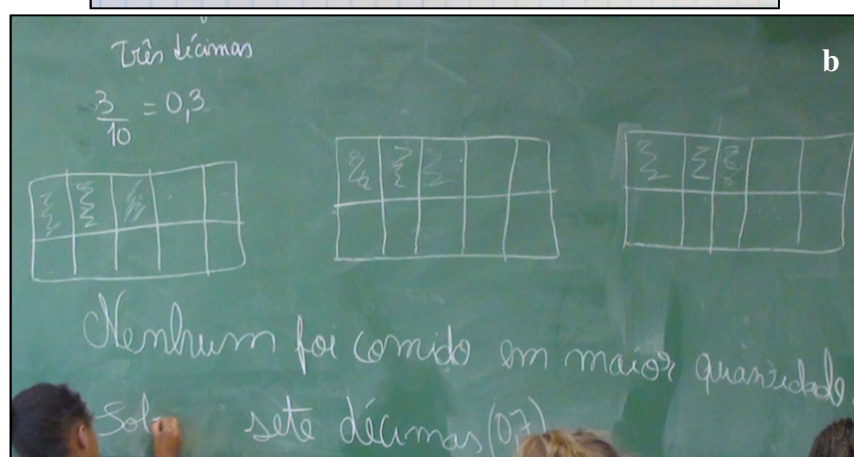 b
Três décimas
3/10 = 0,3
Nenhum foi comido em maior quantidade.
sete décimas (0,7)